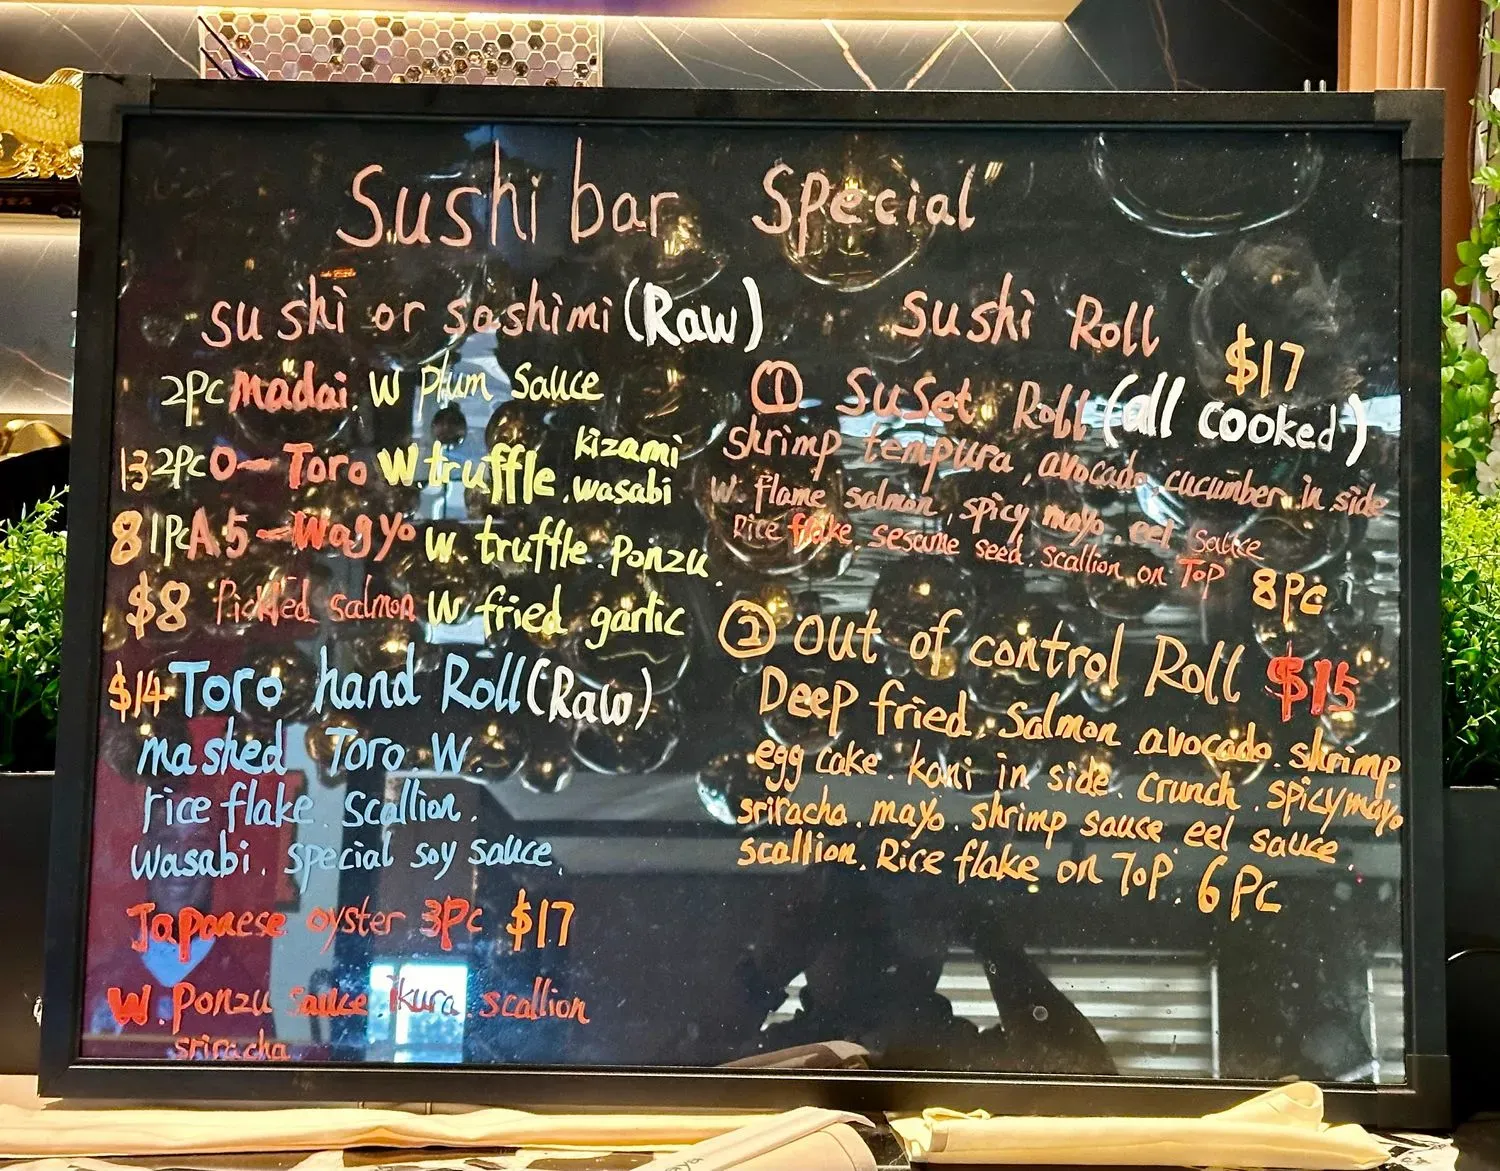 Sushi bar Special
sushi or sashimi (Raw)
2Pc madai. W Plum Sauce
13 2Pc O-Toro W. truffle. kizami wasabi
8 1Pc A.5-Wagyo W. truffle. Ponzu.
$8 Pickled salmon W fried garlic
$14 Toro hand Roll (Raw)
mashed Toro. W.
rice flake. Scallion.
Wasabi. special soy sauce.
Japanese oyster 3Pc $17
W. Ponzu sauce. ikura. scallion
sriracha
Sushi Roll
$17
① SuSet Roll (all cooked)
shrimp tempura, avocado, cucumber in side
W. flame salmon, spicy mayo. eel sauce
Rice flake. sesame seed. scallion on ToP
8Pc
② out of control Roll $15
Deep fried. Salmon avocado. shrimp.
egg cake. kani in side. Crunch. spicy mayo
sriracha. mayo. shrimp sauce. eel sauce.
scallion. Rice flake on ToP. 6Pc